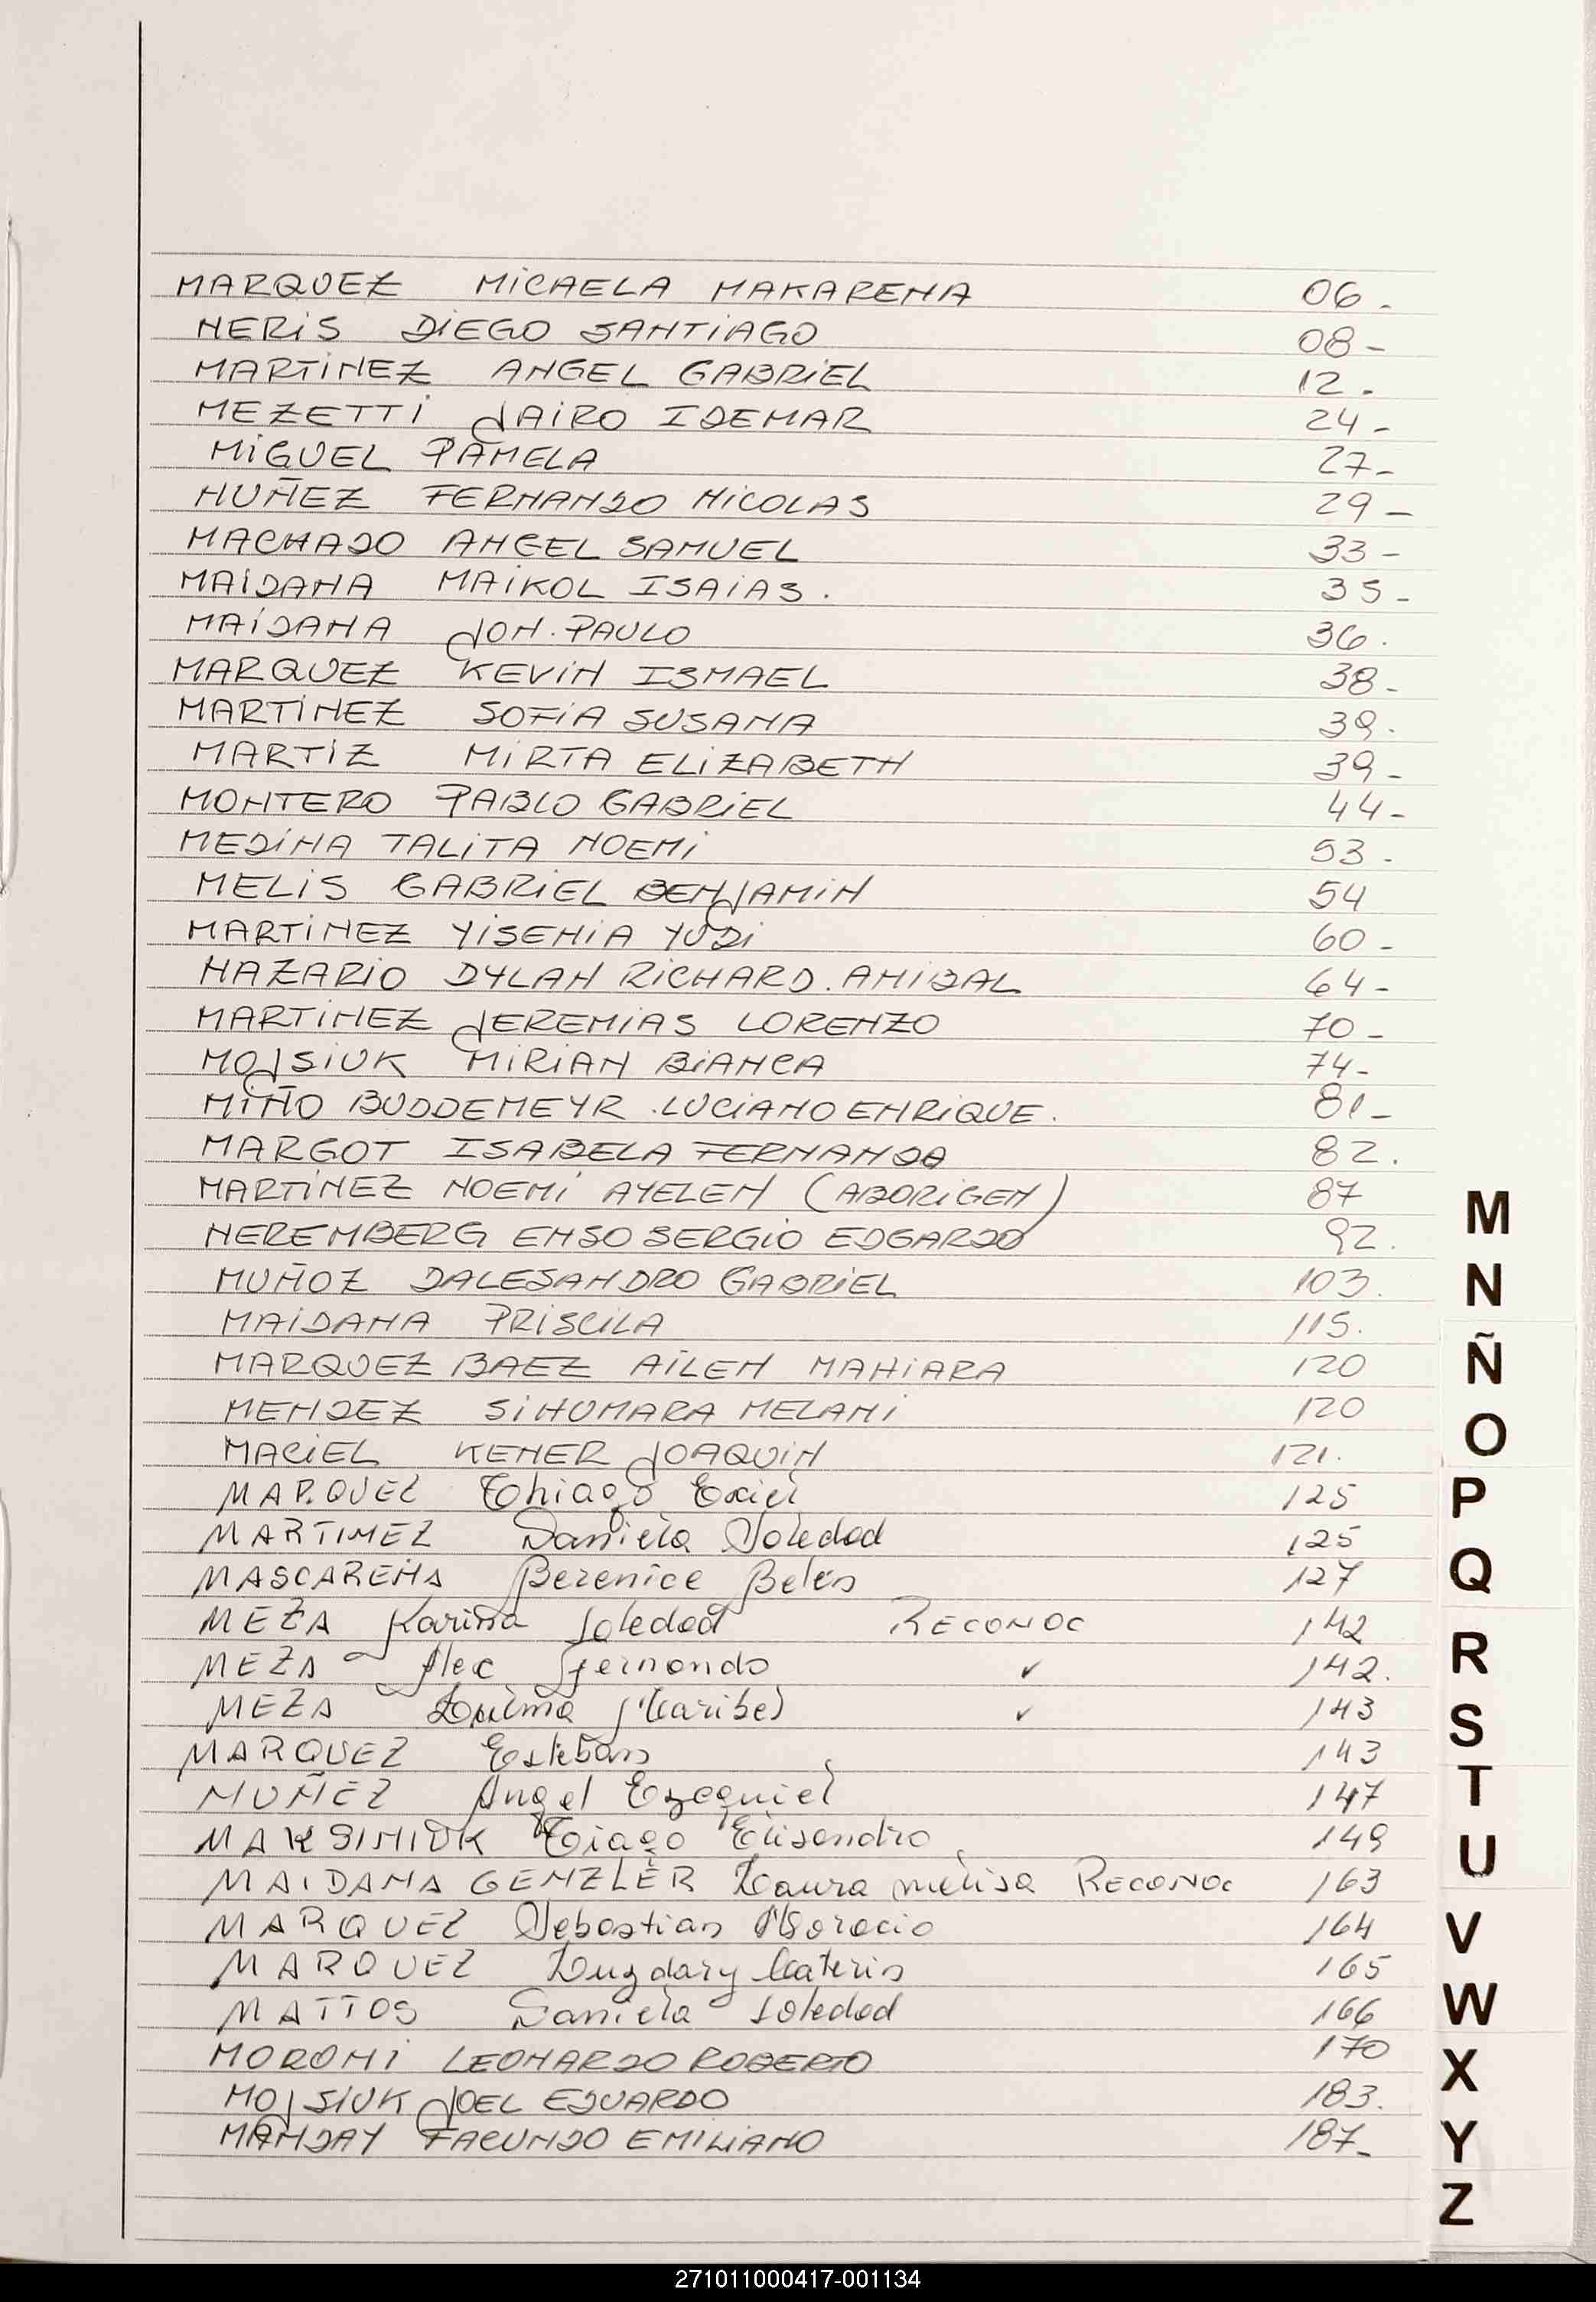 MARQUEZ MICAELA MAKARENA 06.
NERIS DIEGO SANTIAGO 08-
MARTINEZ ANGEL GABRIEL 12.
MEZETTI JAIRO IDEMAR 24-
MIGUEL PAMELA 27-
NUÑEZ FERNANDO NICOLAS 29-
MACHADO ANGEL SAMUEL 33-
MAIDANA MAIKOL ISAIAS. 35-
MAÍDANA JON.PAULO 36.
MARQUEZ KEVIN ISMAEL 38-
MARTINEZ SOFIA SUSANA 39.
MARTIZ MIRTA ELIZABETH 39-
MONTERO PABLO GABRIEL 44-
MEDINA TALITA NOEMI 53-
MELIS GABRIEL BENJAMIN 54
MARTINEZ YISENIA YUDI 60-
NAZARIO DYLAN RICHARD. ANIBAL 64-
MARTINEZ JEREMIAS LORENZO 70-
MOJSIUK MIRIAN BIANCA 74-
MIÑO BUDDEMEYR .LUCIANO ENRIQUE. 81-
MARGOT ISABELA FERNANDA 82.
MARTINEZ NOEMI AYELEN (ABORIGEN) 87
NEREMBERG ENSO SERGIO EDGARDO 92.
MUÑOZ DALESANDRO GABRIEL 103.
MAIDANA PRISCILA 115.
MARQUEZ BAEZ AILEN NAHIARA 120
MENDEZ SIHOMARA MELANI 120
MACIEL KENER JOAQUIN 121.
MARQUEZ Thiago Exiel 125
MARTINEZ Daniela Soledad 125
MASCAREÑA Berenice Belén 127
MEZA Karina Soledad RECONOC 142
MEZA Alex Fernando ✓ 142.
MEZA Maribel ✓ 143
MARQUEZ Esteban 143
MUÑEZ Angel Ezequiel 147
MAKSIMIUK Tiago Elisandro 149
MAIDANA GENZLER Laura Melisa RECONOC 163
MARQUEZ Sebastian Horacio 164
MARQUEZ Luzdary Caterin 165
MATTOS Daniela Soledad 166
MORONI LEONARDO ROBERTO 170
MOJSIUK JOEL EDUARDO 183.
MANDAY FACUNDO EMILIANO 187-
M
N
Ñ
O
P
Q
R
S
T
U
V
W
X
Y
Z
271011000417-001134